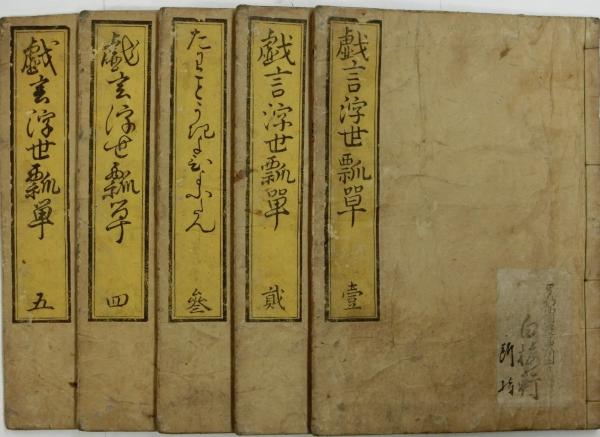 戯言浮世瓢單
壹
戯言浮世瓢單
貳
たはことうきよひょうたん
叄
戯言浮世瓢單
四
戯言浮世瓢単
五
白梅
所持